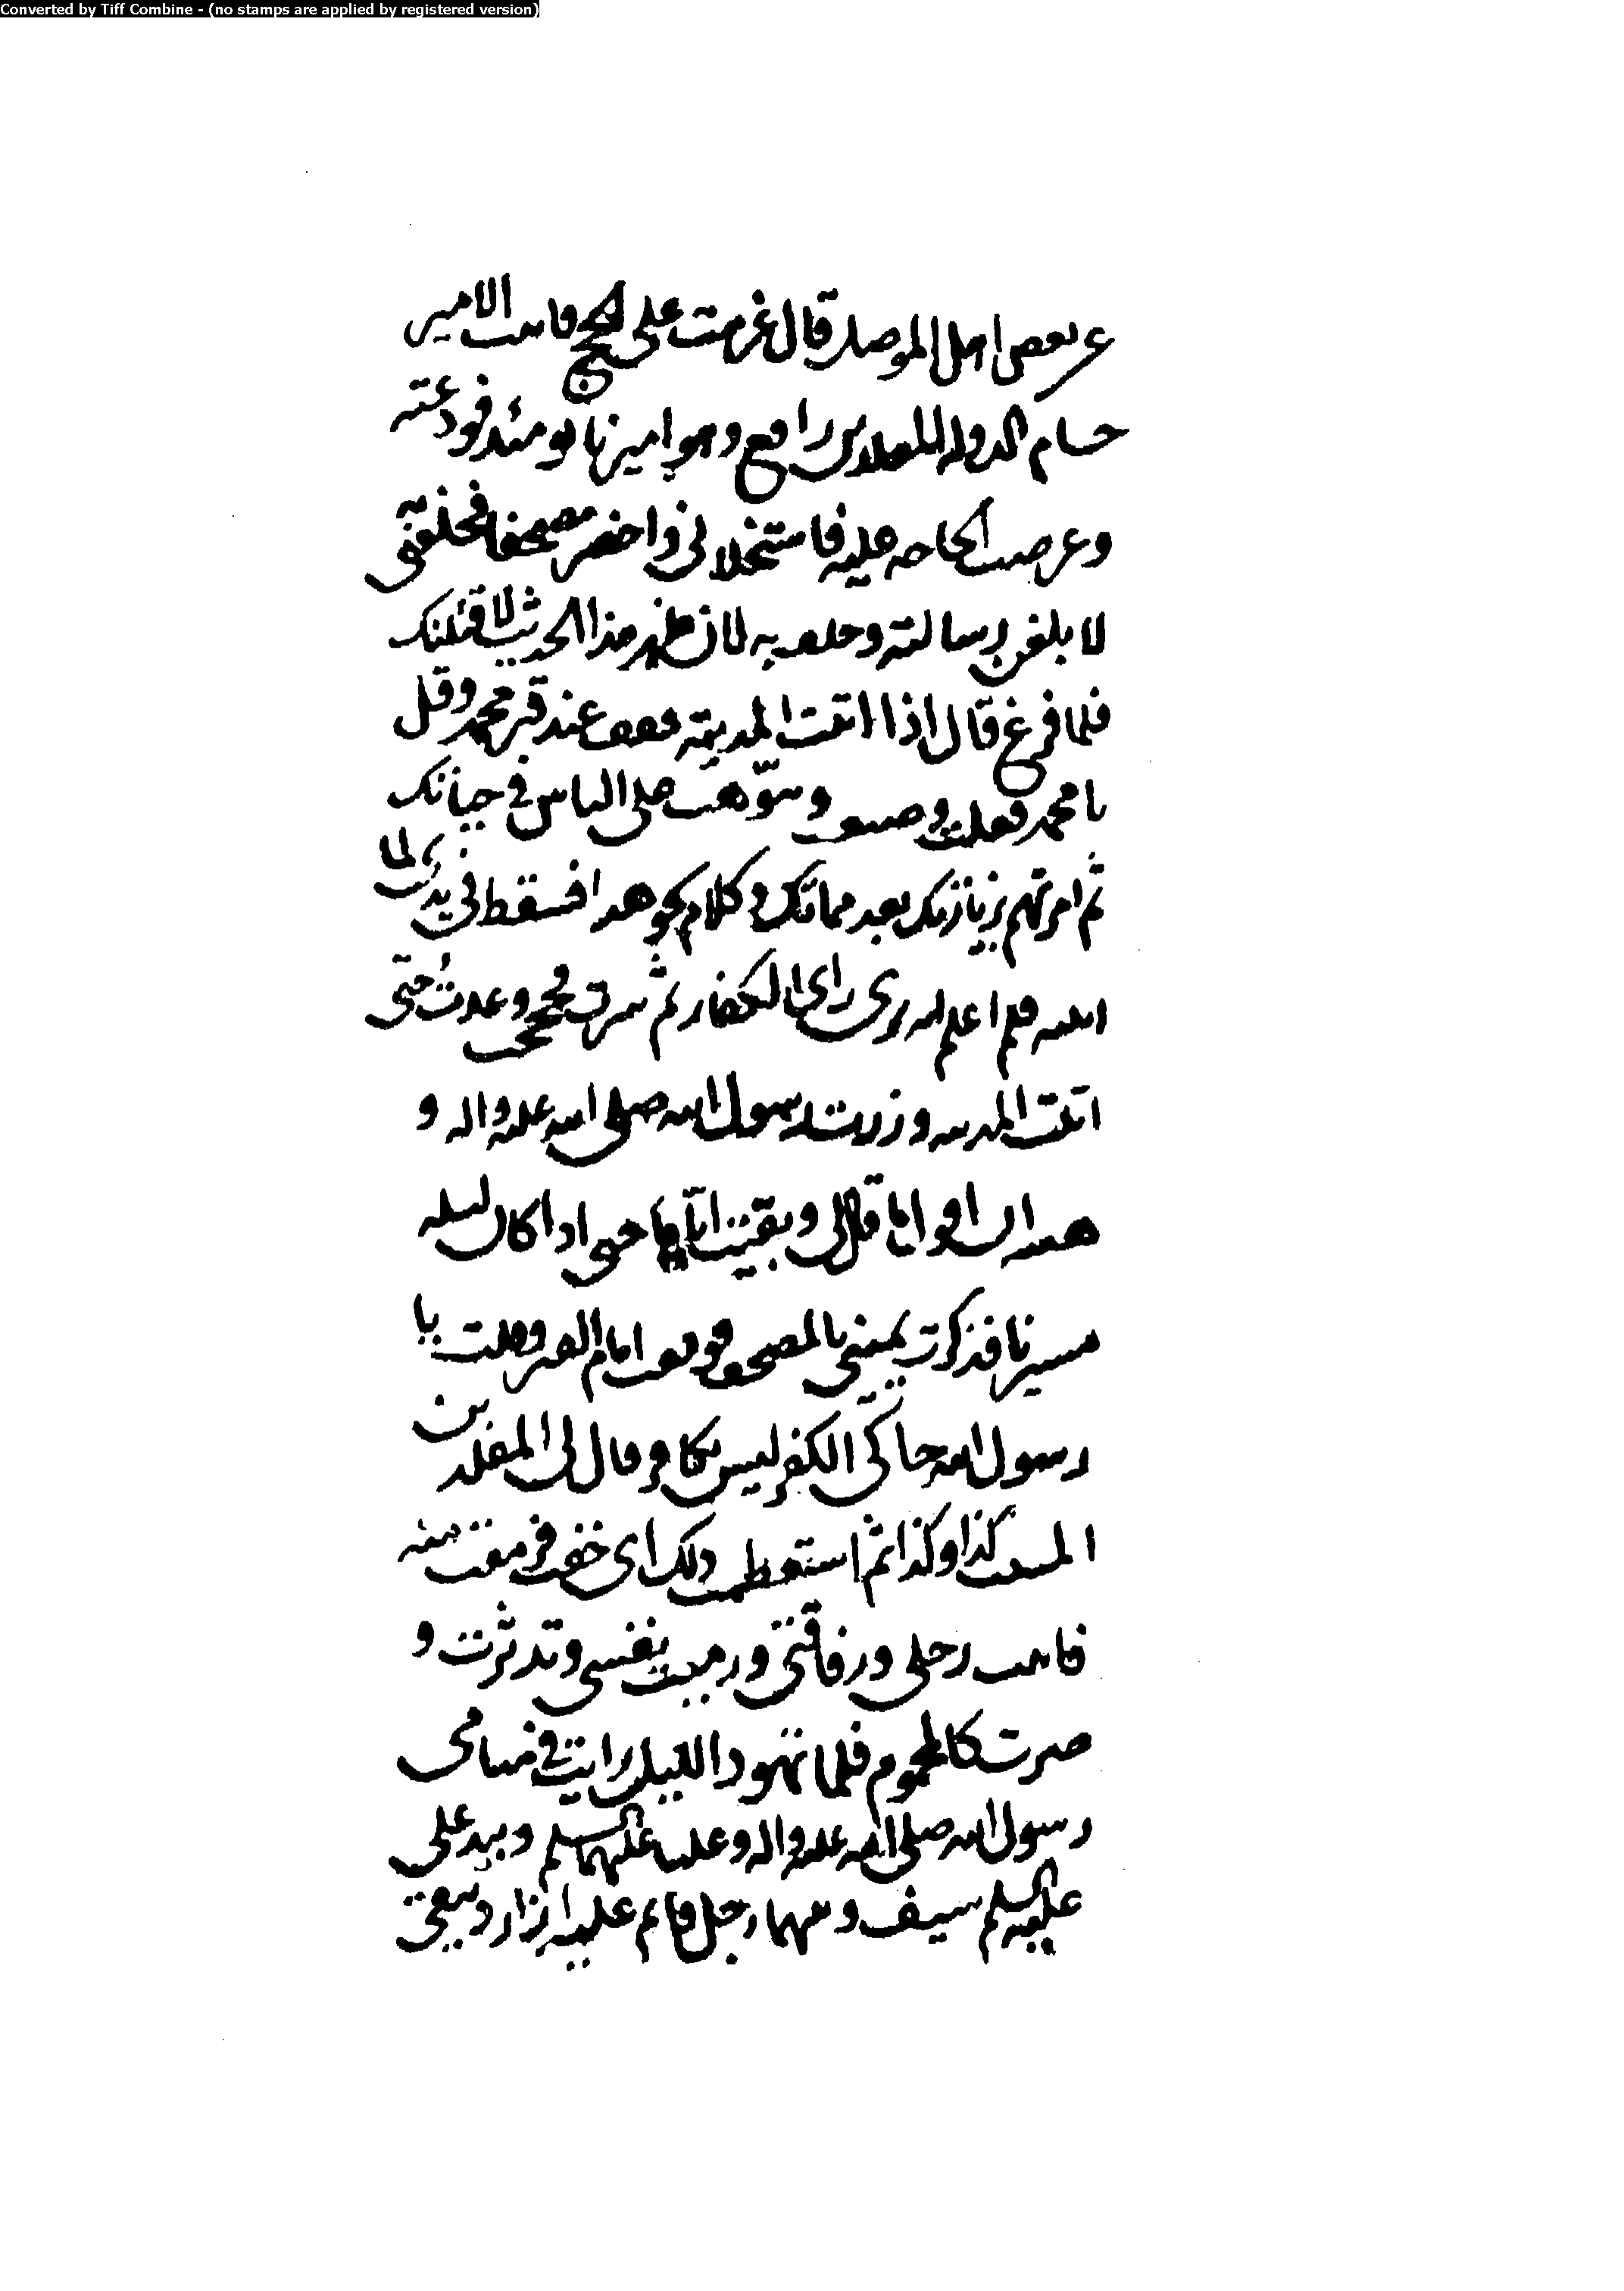 Converted by Tiff Combine - (no stamps are applied by registered version)
عن بعض اهل الموصل قال عزمت على الحج فاتيت الامير
حسام الدولة المقلد بن رافع وهو اميرنا يومئذ فودعته
وعرضت الحاجه عليه فاستخلا بى واحضر مصحفا فحلفنى
لا بلغن رسالته وحلف به لان ظهر هذا الحديث لاقتلنك
فلما فرغ قال اذا اتيت المدينة فقف عند قبر محمد وقل
يا محمد فعلت وصنعت وموهت على الناس فى حياتك
ثم امرتهم بزيارتك بعد مماتك وكلام نحو هذا فسقط فى يدى لما
اتيته فلم اعلم انه يرى راى الكفار ثم سرت فحججت وعدت حتى
اتيت المدينه وزرت رسول الله صلى الله عليه واله و
هبته ان اقول ما قال لى وبقيت اياما حتى اذا كان ليله
مسيرنا فذكرت يمينى بالمصحف فوقفت امام القبر وقلت يا
رسول الله حاكى الكفر ليس بكافر قال لى المقلد بن
المسيب كذا وكذا ثم استعظمت ذلك اى خفت وفزعت منه
فاتيت رحلى ورفاقتى ورميت بنفسى وتدثرت و
صرت كالمحموم فلما تهور الليل رايت فى منامى
رسول الله صلى الله عليه واله وعليا عليهما السلم وبيد على
عليه السلم سيف وبينهما رجل قائم عليه ازار دبيقى